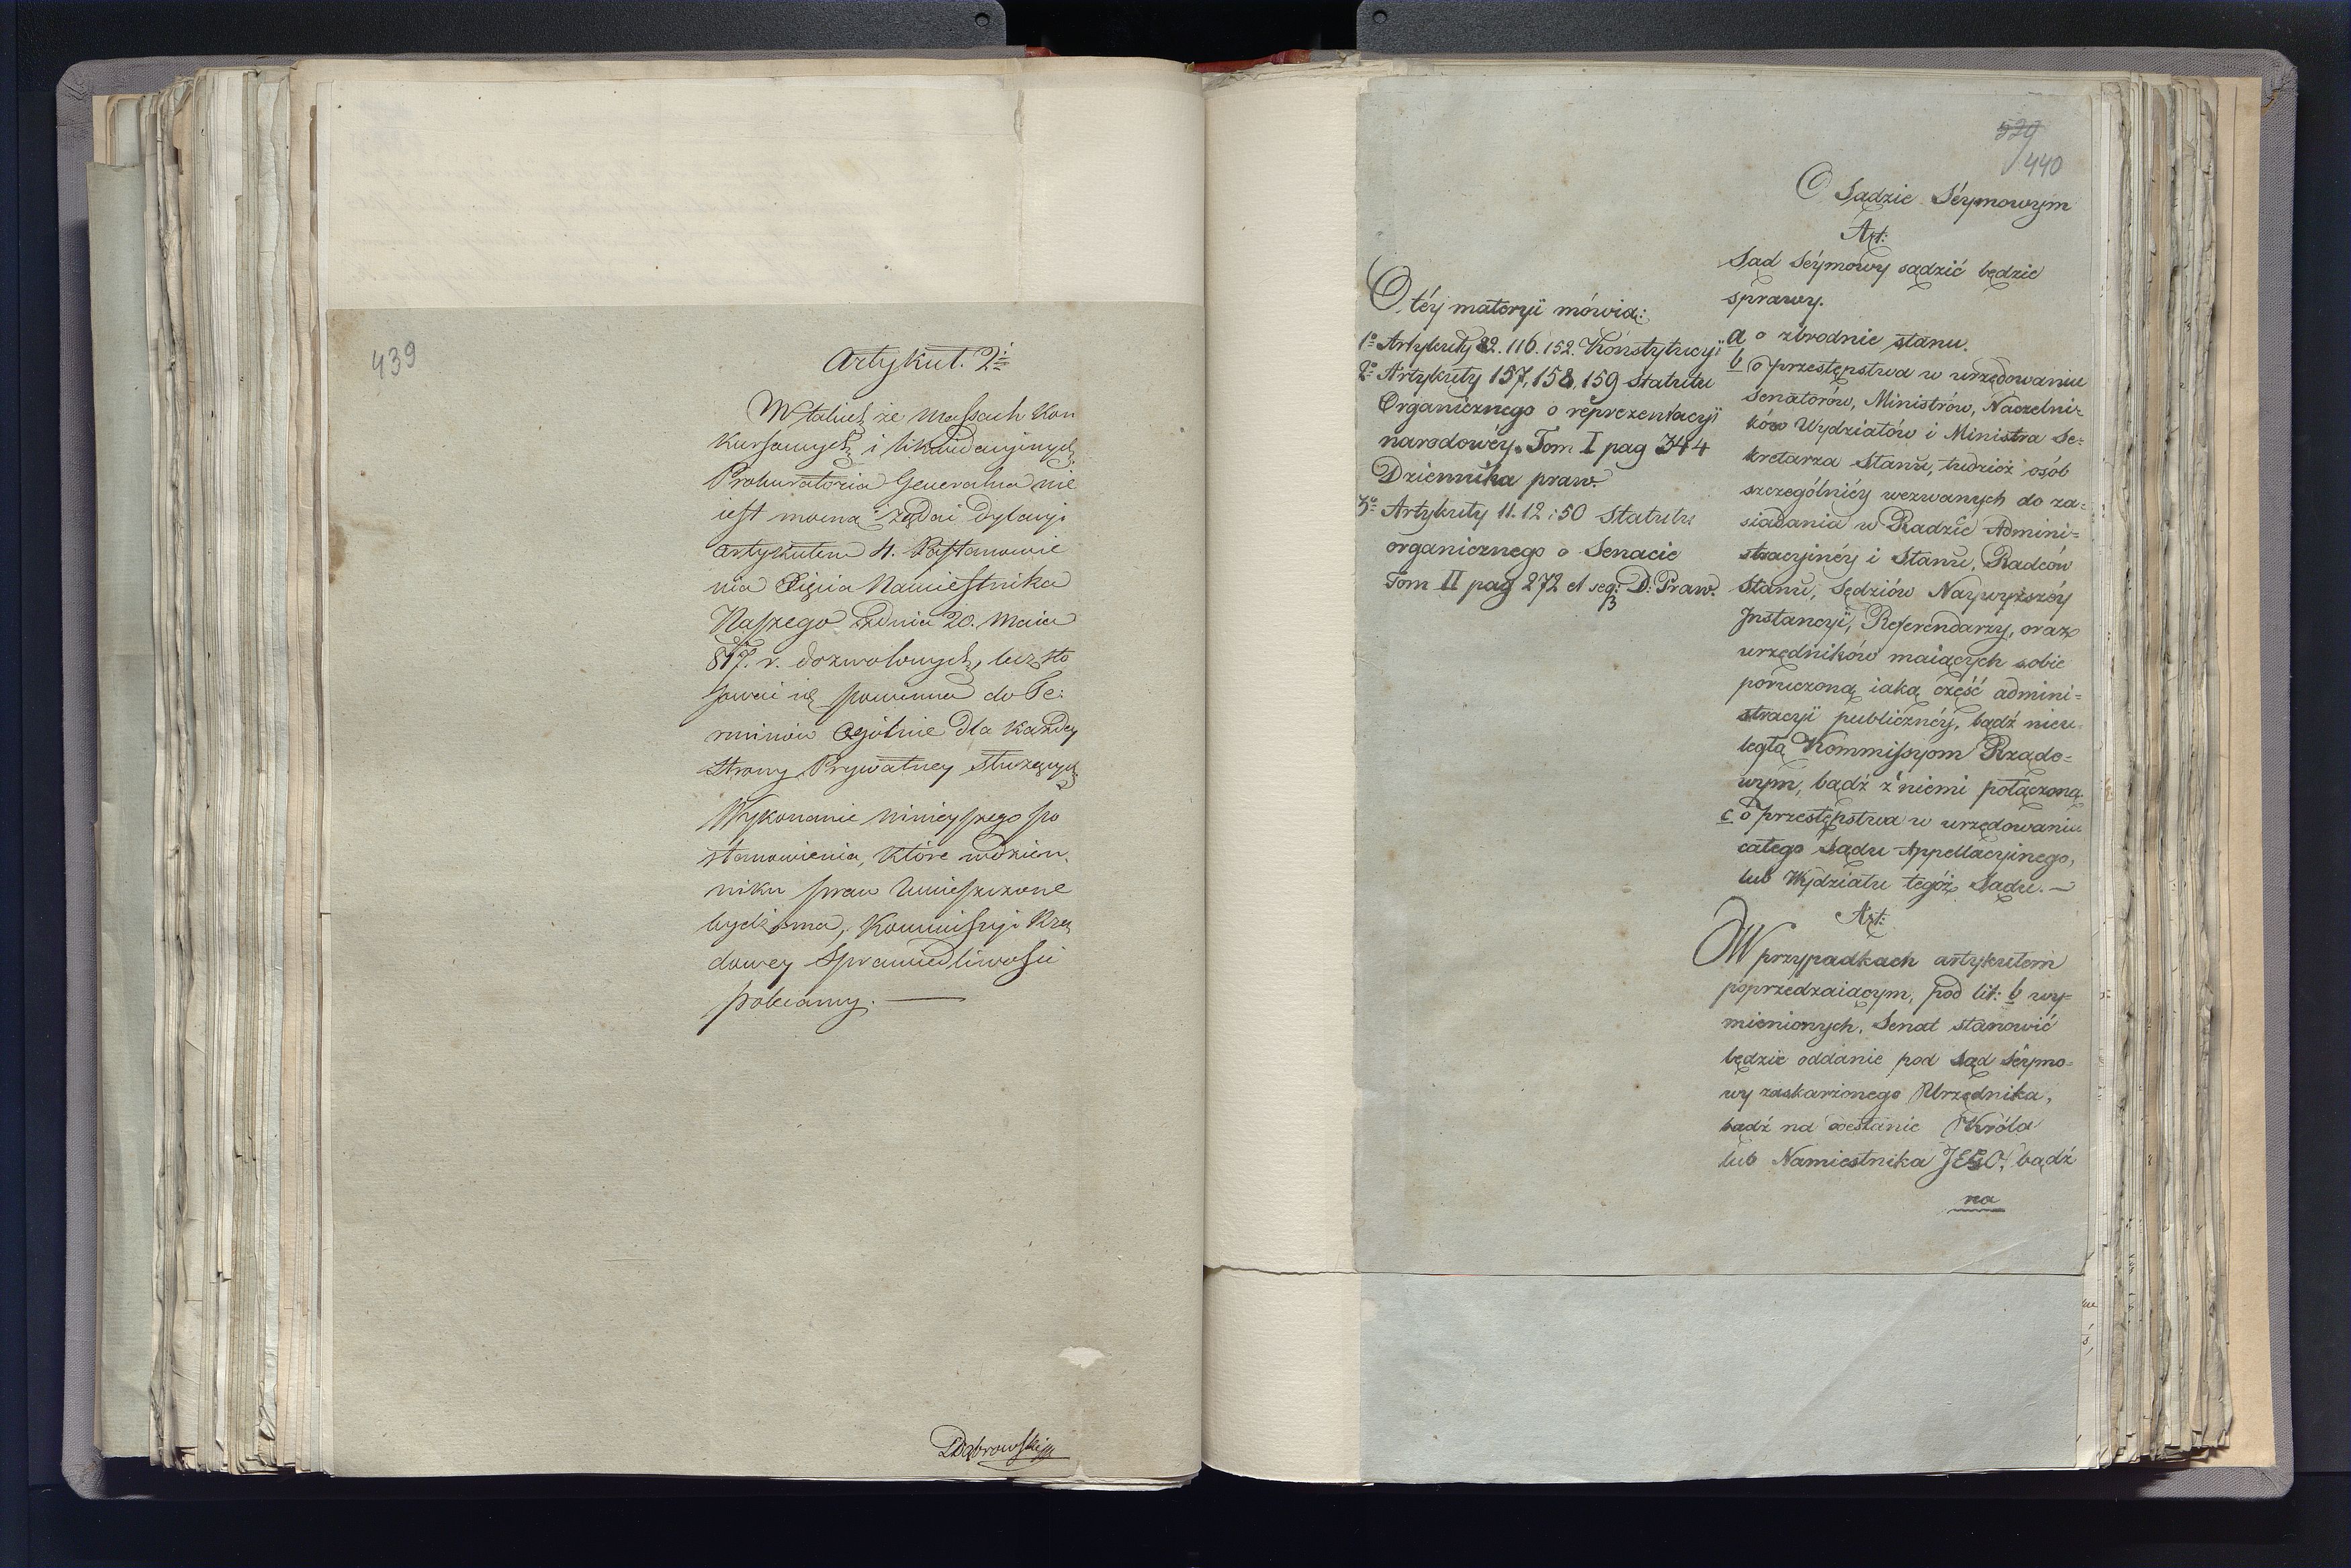 439
Artykuł. 2i
W takich że Massach Kon
kursowych i likwidacyinych
Prokuratoria Generalna nie
iest mocna żądać Dylacyi
artykułem 4. Postanowie
nia Xięcia Namiestnika
Naszego z dnia 20. Maia
817. r. dozwolonych, lecz sto
sować się powinna do Te:
rminów ogólnie dla każdey
strony Prywatney służących
Wykonanie ninieyszego po
stanowienia, które w dzien„
niku praw umieszczone
bydź ma, Kommissyi Rzą
dowey Sprawiedliwości
polecamy. —
Dąbrowski
529
440
O Sądzie Séymowym
Art:
Sąd Séymowy sądzić będzie
sprawy.
a o zbrodnie stanu.
b o przestępstwa w urzędowaniu
Senatorów, Ministrów, Naczelni=
ków Wydziałów i Ministra Se=
kretarza Stanu, tudzież osób
szczególniéy wezwanych do za=
siadania w Radzie Admini=
stracyinéy i Stanu, Radców
Stanu, Sędziów Naywyższéy
Jnstancyi, Referendarzy, oraz
urzędników maiących sobie
poruczoną iaką część admini=
stracyi publicznéy, bądź nieu=
ległą Kommissyom Rządo=
wym, bądź z niemi połączoną.
c o przestępstwa w urzędowaniu
całego Sądu Appellacyinego,
lub Wydziału tegóż Sądu. —
Art:
W przypadkach artykułem
poprzedzaiącym, pod lit: b wy=
mienionych, Senat stanowić
będzie oddanie pod sąd séymo=
wy zaskarżonego Urzędnika,
bądź na zesłanie Króla
lub Namiestnika JEGO, bądź
na
O téy materyi mówią:
1o Artykuły 82. 116. 152. Konstytucyi
2o Artykuły 157, 158, 159 Statutu
Organicznego o reprezentacyi
narodowéy. Tom I pag 344
Dziennika praw.
3o Artykuły 11. 12 i 50 Statutu
organicznego o Senacie
Tom II pag 272 et seq: D: Praw.